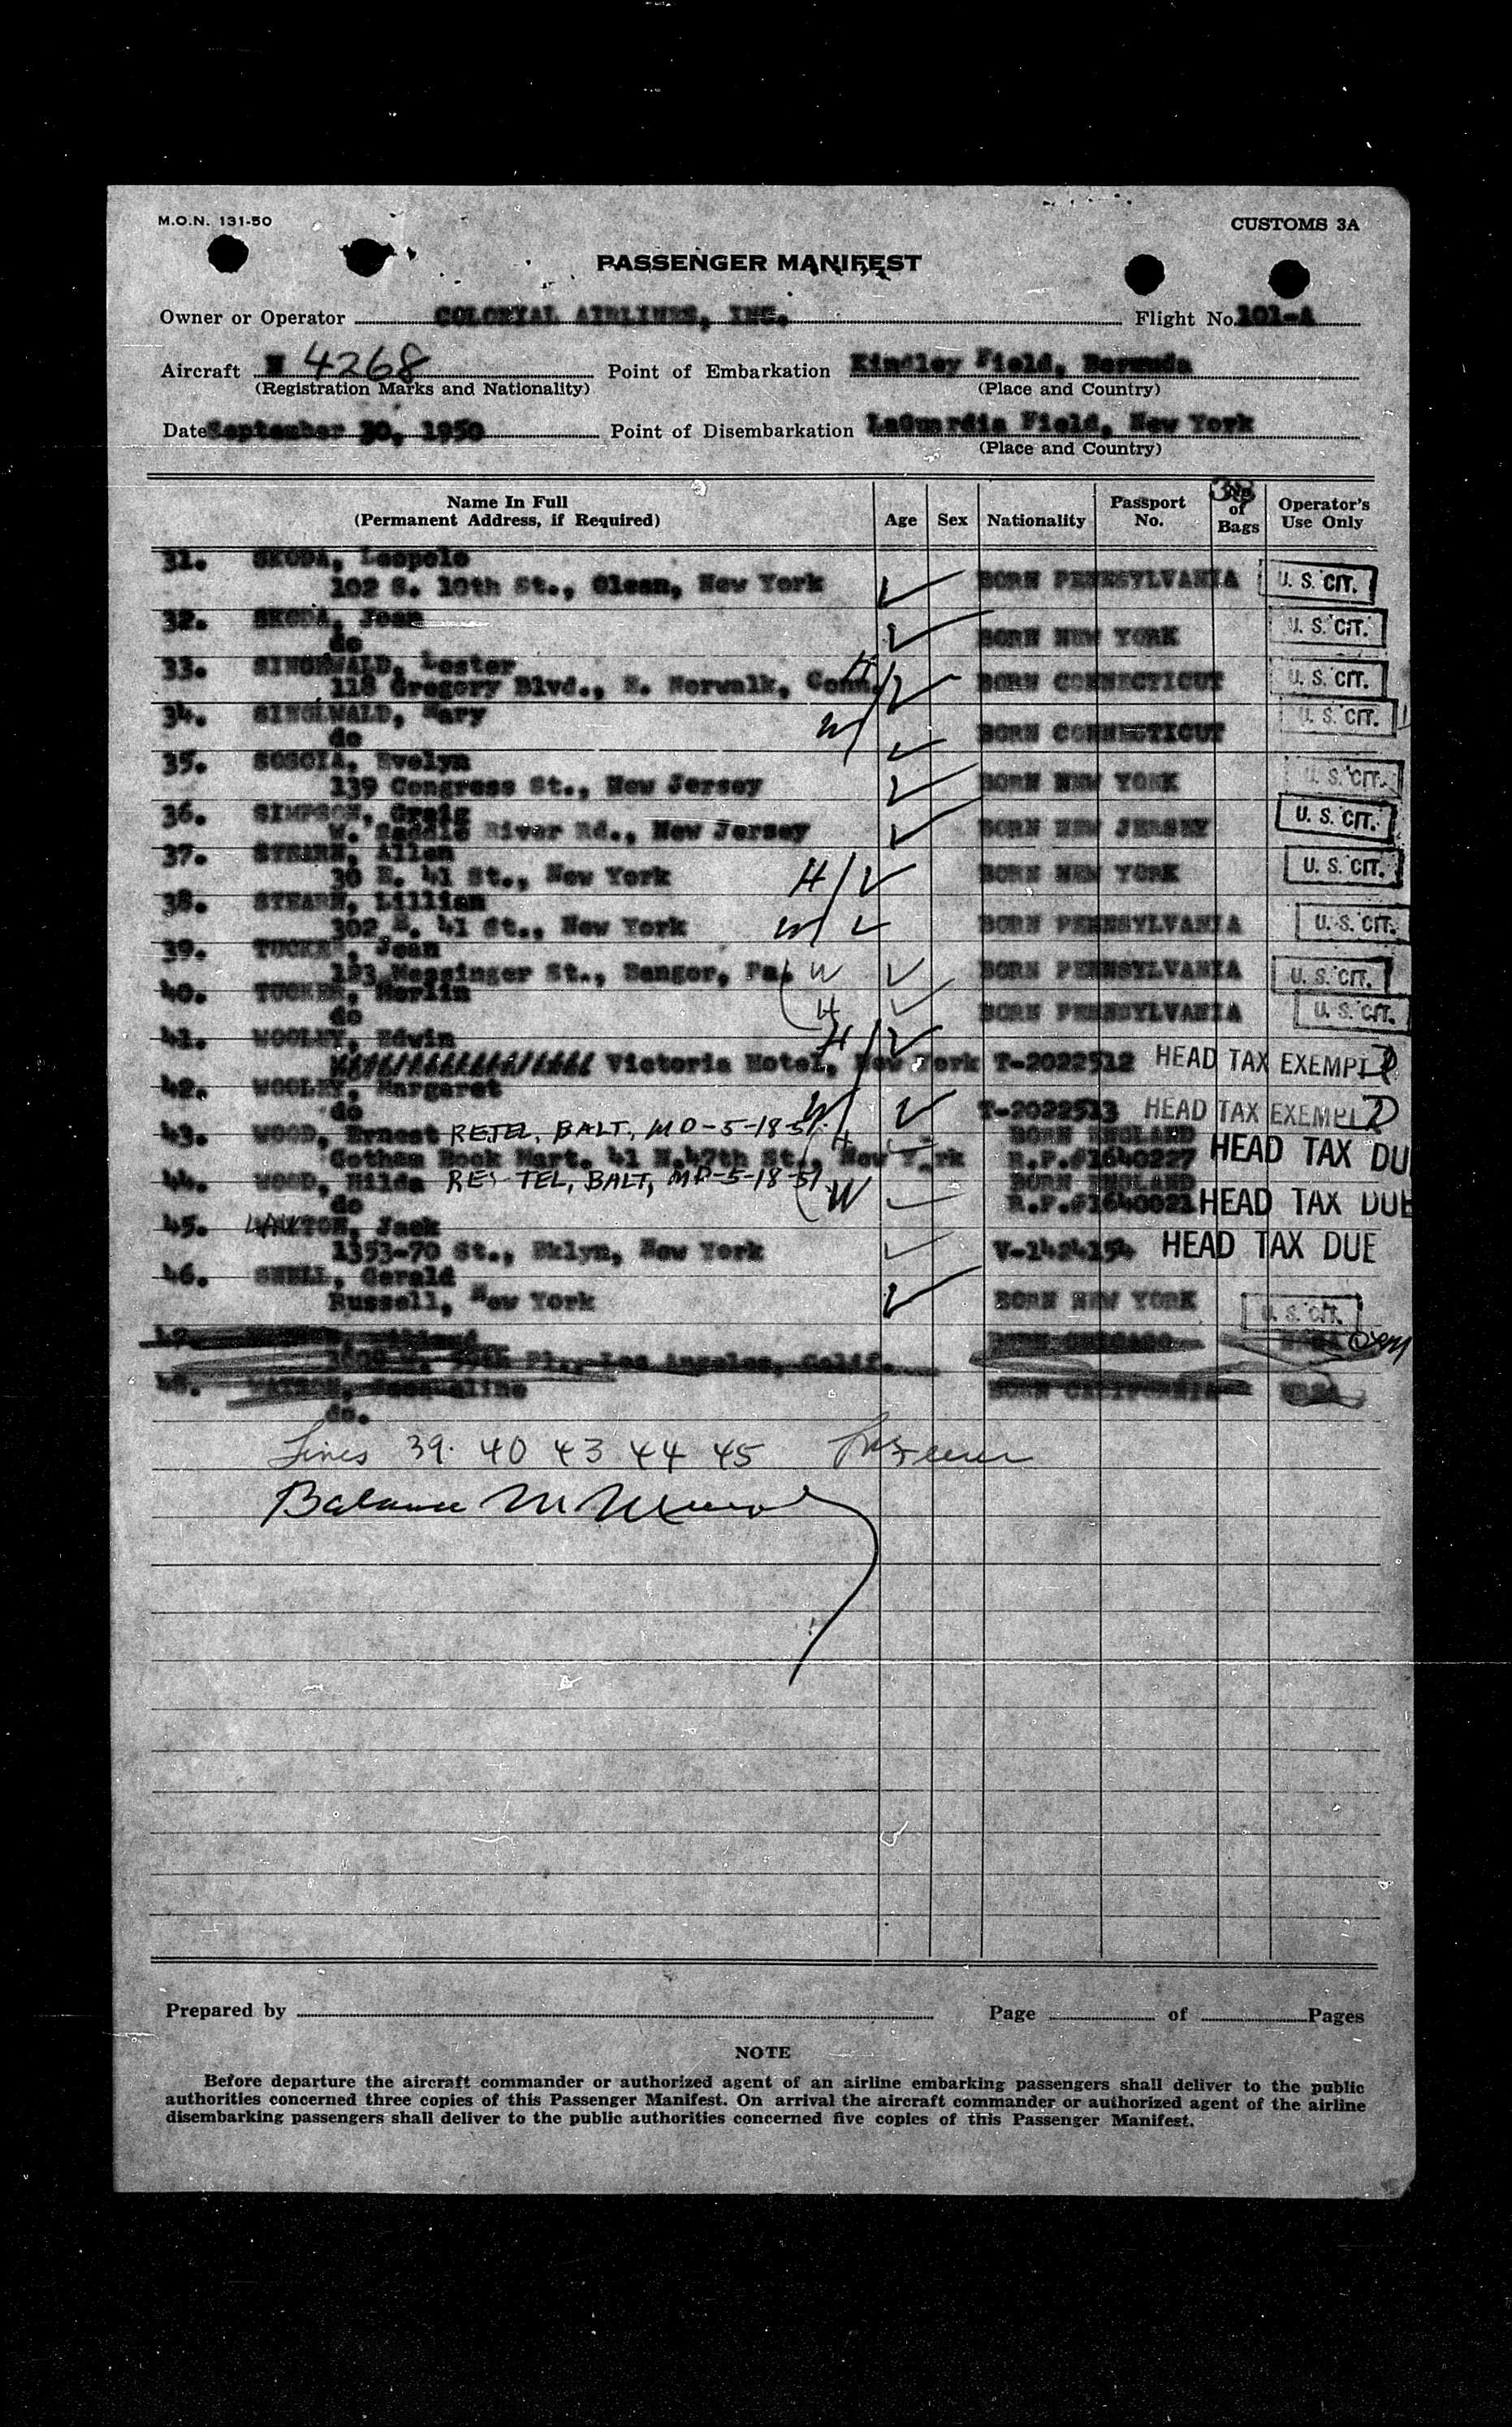 M.O.N. 131-50
CUSTOMS 3A
PASSENGER MANIFEST
Owner or Operator COLONIAL AIRLINES, INC. Flight No. 101-A
Aircraft N 4268 Point of Embarkation Kindley Field, Bermuda
(Registration Marks and Nationality) (Place and Country)
Date September 30, 1950 Point of Disembarkation LaGuardia Field, New York
(Place and Country)
38
Name In Full (Permanent Address, if Required) Age Sex Nationality Passport No. No. of Bags Operator's Use Only
31. SKODA, Leopole
102 S. 10th St., Olean, New York BORN PENNSYLVANIA U. S. CIT.
32. SKODA, Jean
do BORN NEW YORK U. S. CIT.
33. SINGEWALD, Lester H
118 Gregory Blvd., E. Norwalk, Conn. BORN CONNECTICUT U. S. CIT.
34. SINGLWALD, Mary W
do BORN CONNECTICUT U. S. CIT.
35. SOSCIA, Evelyn
139 Congress St., New Jersey BORN NEW YORK U. S. CIT.
36. SIMPSON, Greig
W. Saddle River Rd., New Jersey BORN NEW JERSEY U. S. CIT.
37. STEARN, Allen
30 E. 41 St., New York H BORN NEW YORK U. S. CIT.
38. STEARN, Lillian
302 E. 41 St., New York W BORN PENNSYLVANIA U. S. CIT.
39. TUCKER, Jean
123 Messinger St., Bangor, Pa. W BORN PENNSYLVANIA U. S. CIT.
40. TUCKER, Merlin
do H BORN PENNSYLVANIA U. S. CIT.
41. WOOLEY, Edwin H
Victoria Hotel, New York T-2022512 HEAD TAX EXEMPT
42. WOOLEY, Margaret
do W T-2022513 HEAD TAX EXEMPT
43. WOOD, Ernest RETEL. BALT, MD-5-18-51. H BORN ENGLAND
Gotham Book Mart. 41 W.47th St., New York R.P.#1640227 HEAD TAX DU
44. WOOD, Hilda RES TEL, BALT, MD-5-18-51 BORN ENGLAND
do W R.P.#1640021 HEAD TAX DUE
45. LAXTON, Jack
1353-70 St., Bklyn, New York V-1424154 HEAD TAX DUE
46. SNELL, Gerald
Russell, New York BORN NEW YORK U. S. CIT.
47. BORN CHICAGO
Pl., Los Angeles, Calif.
48. Jacqueline BORN CALIFORNIA
do.
Lines 39. 40 43 44 45
Balance
Prepared by Page of Pages
NOTE
Before departure the aircraft commander or authorized agent of an airline embarking passengers shall deliver to the public
authorities concerned three copies of this Passenger Manifest. On arrival the aircraft commander or authorized agent of the airline
disembarking passengers shall deliver to the public authorities concerned five copies of this Passenger Manifest.